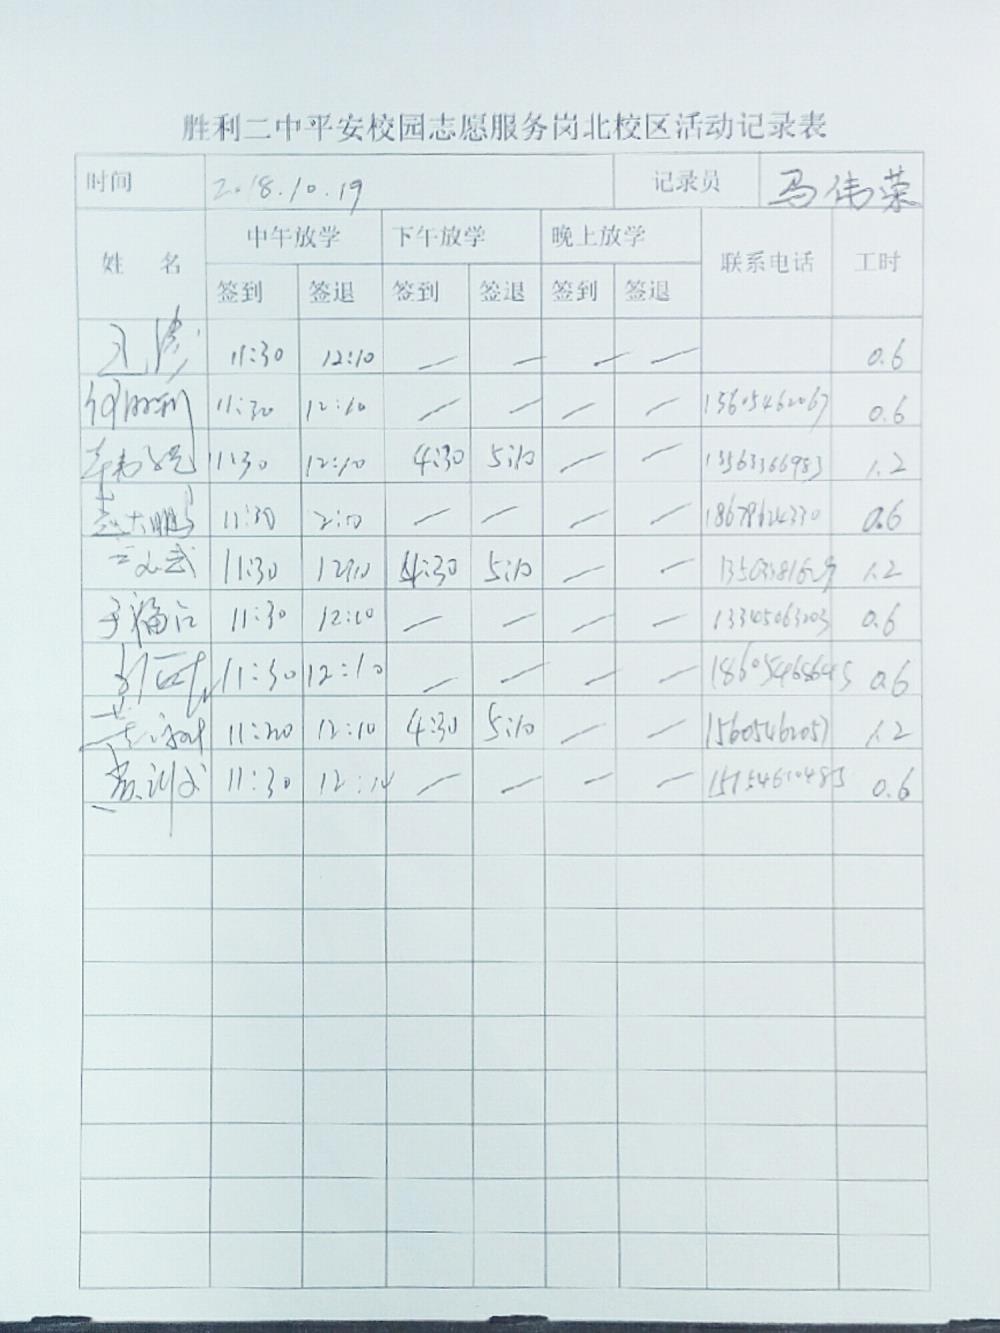 胜利二中平安校园志愿服务岗北校区活动记录表
时间 2018.10.19 记录员 马伟荣
姓 名 中午放学 下午放学 晚上放学 联系电话 工时
签到 签退 签到 签退 签到 签退
11:30 12:10 — — — — 0.6
11:30 12:10 — — — — 13605462067 0.6
11:30 12:10 4:30 5:10 — — 13563366983 1.2
赵大鹏 11:30 2:10 — — — — 18678624330 0.6
11:30 12:10 4:30 5:10 — — 1.2
于福江 11:30 12:10 — — — — 13345063203 0.6
11:30 12:10 — — — — 18605468645 0.6
11:20 12:10 4:30 5:10 — — 1560546205 1.2
11:30 12:10 — — — — 15154610485 0.6